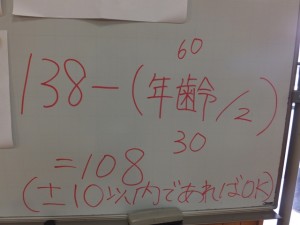 60
138-(年齢/2)
30
=108
(±10以内であればOK)